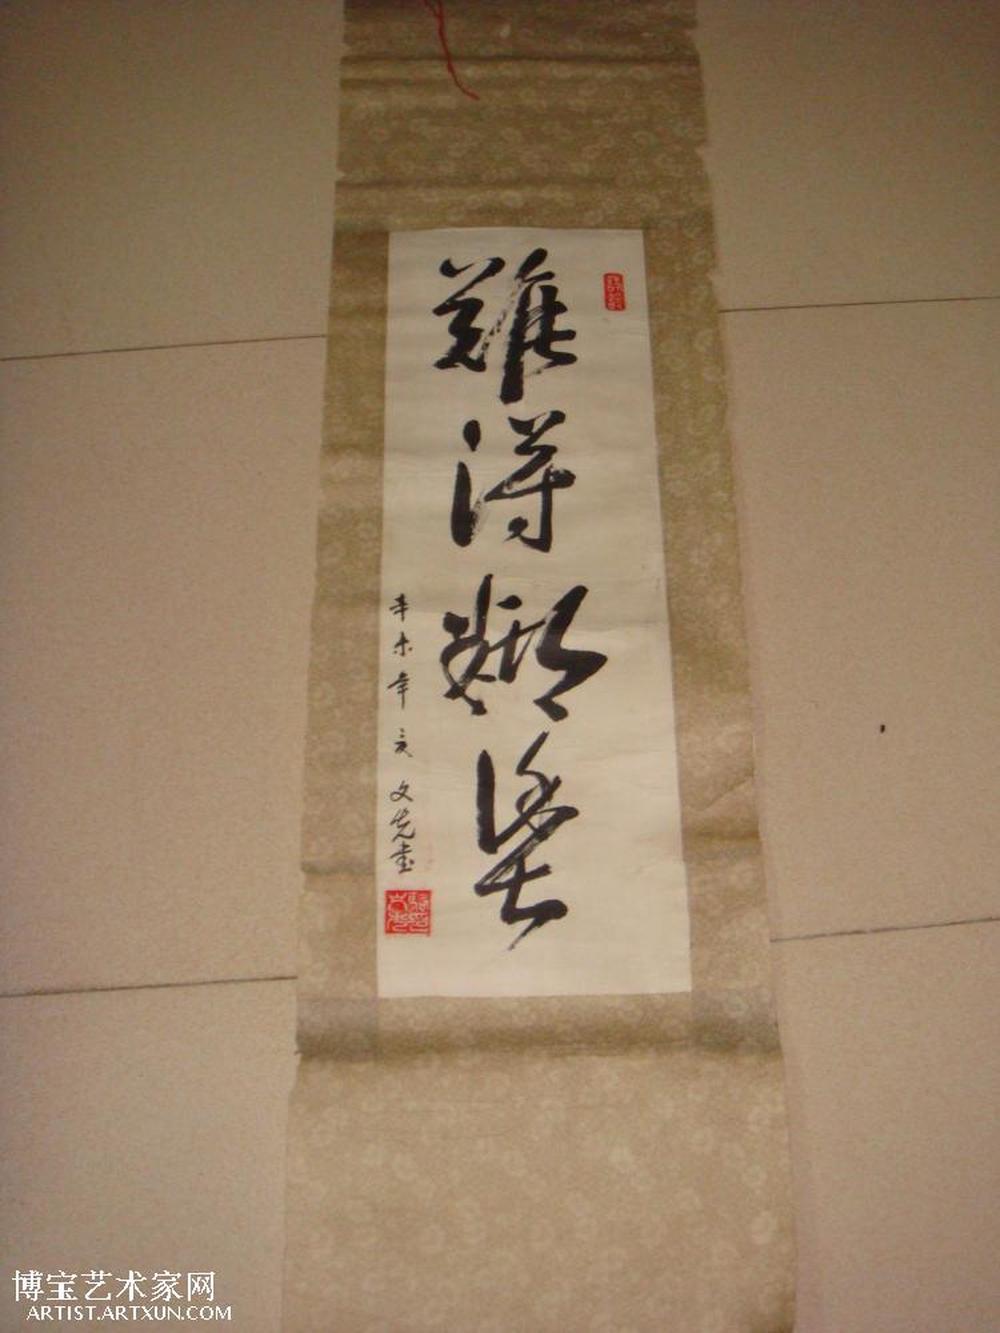 難得糊塗
辛未年 文先书
博宝艺术家网
ARTIST.ARTXUN.COM